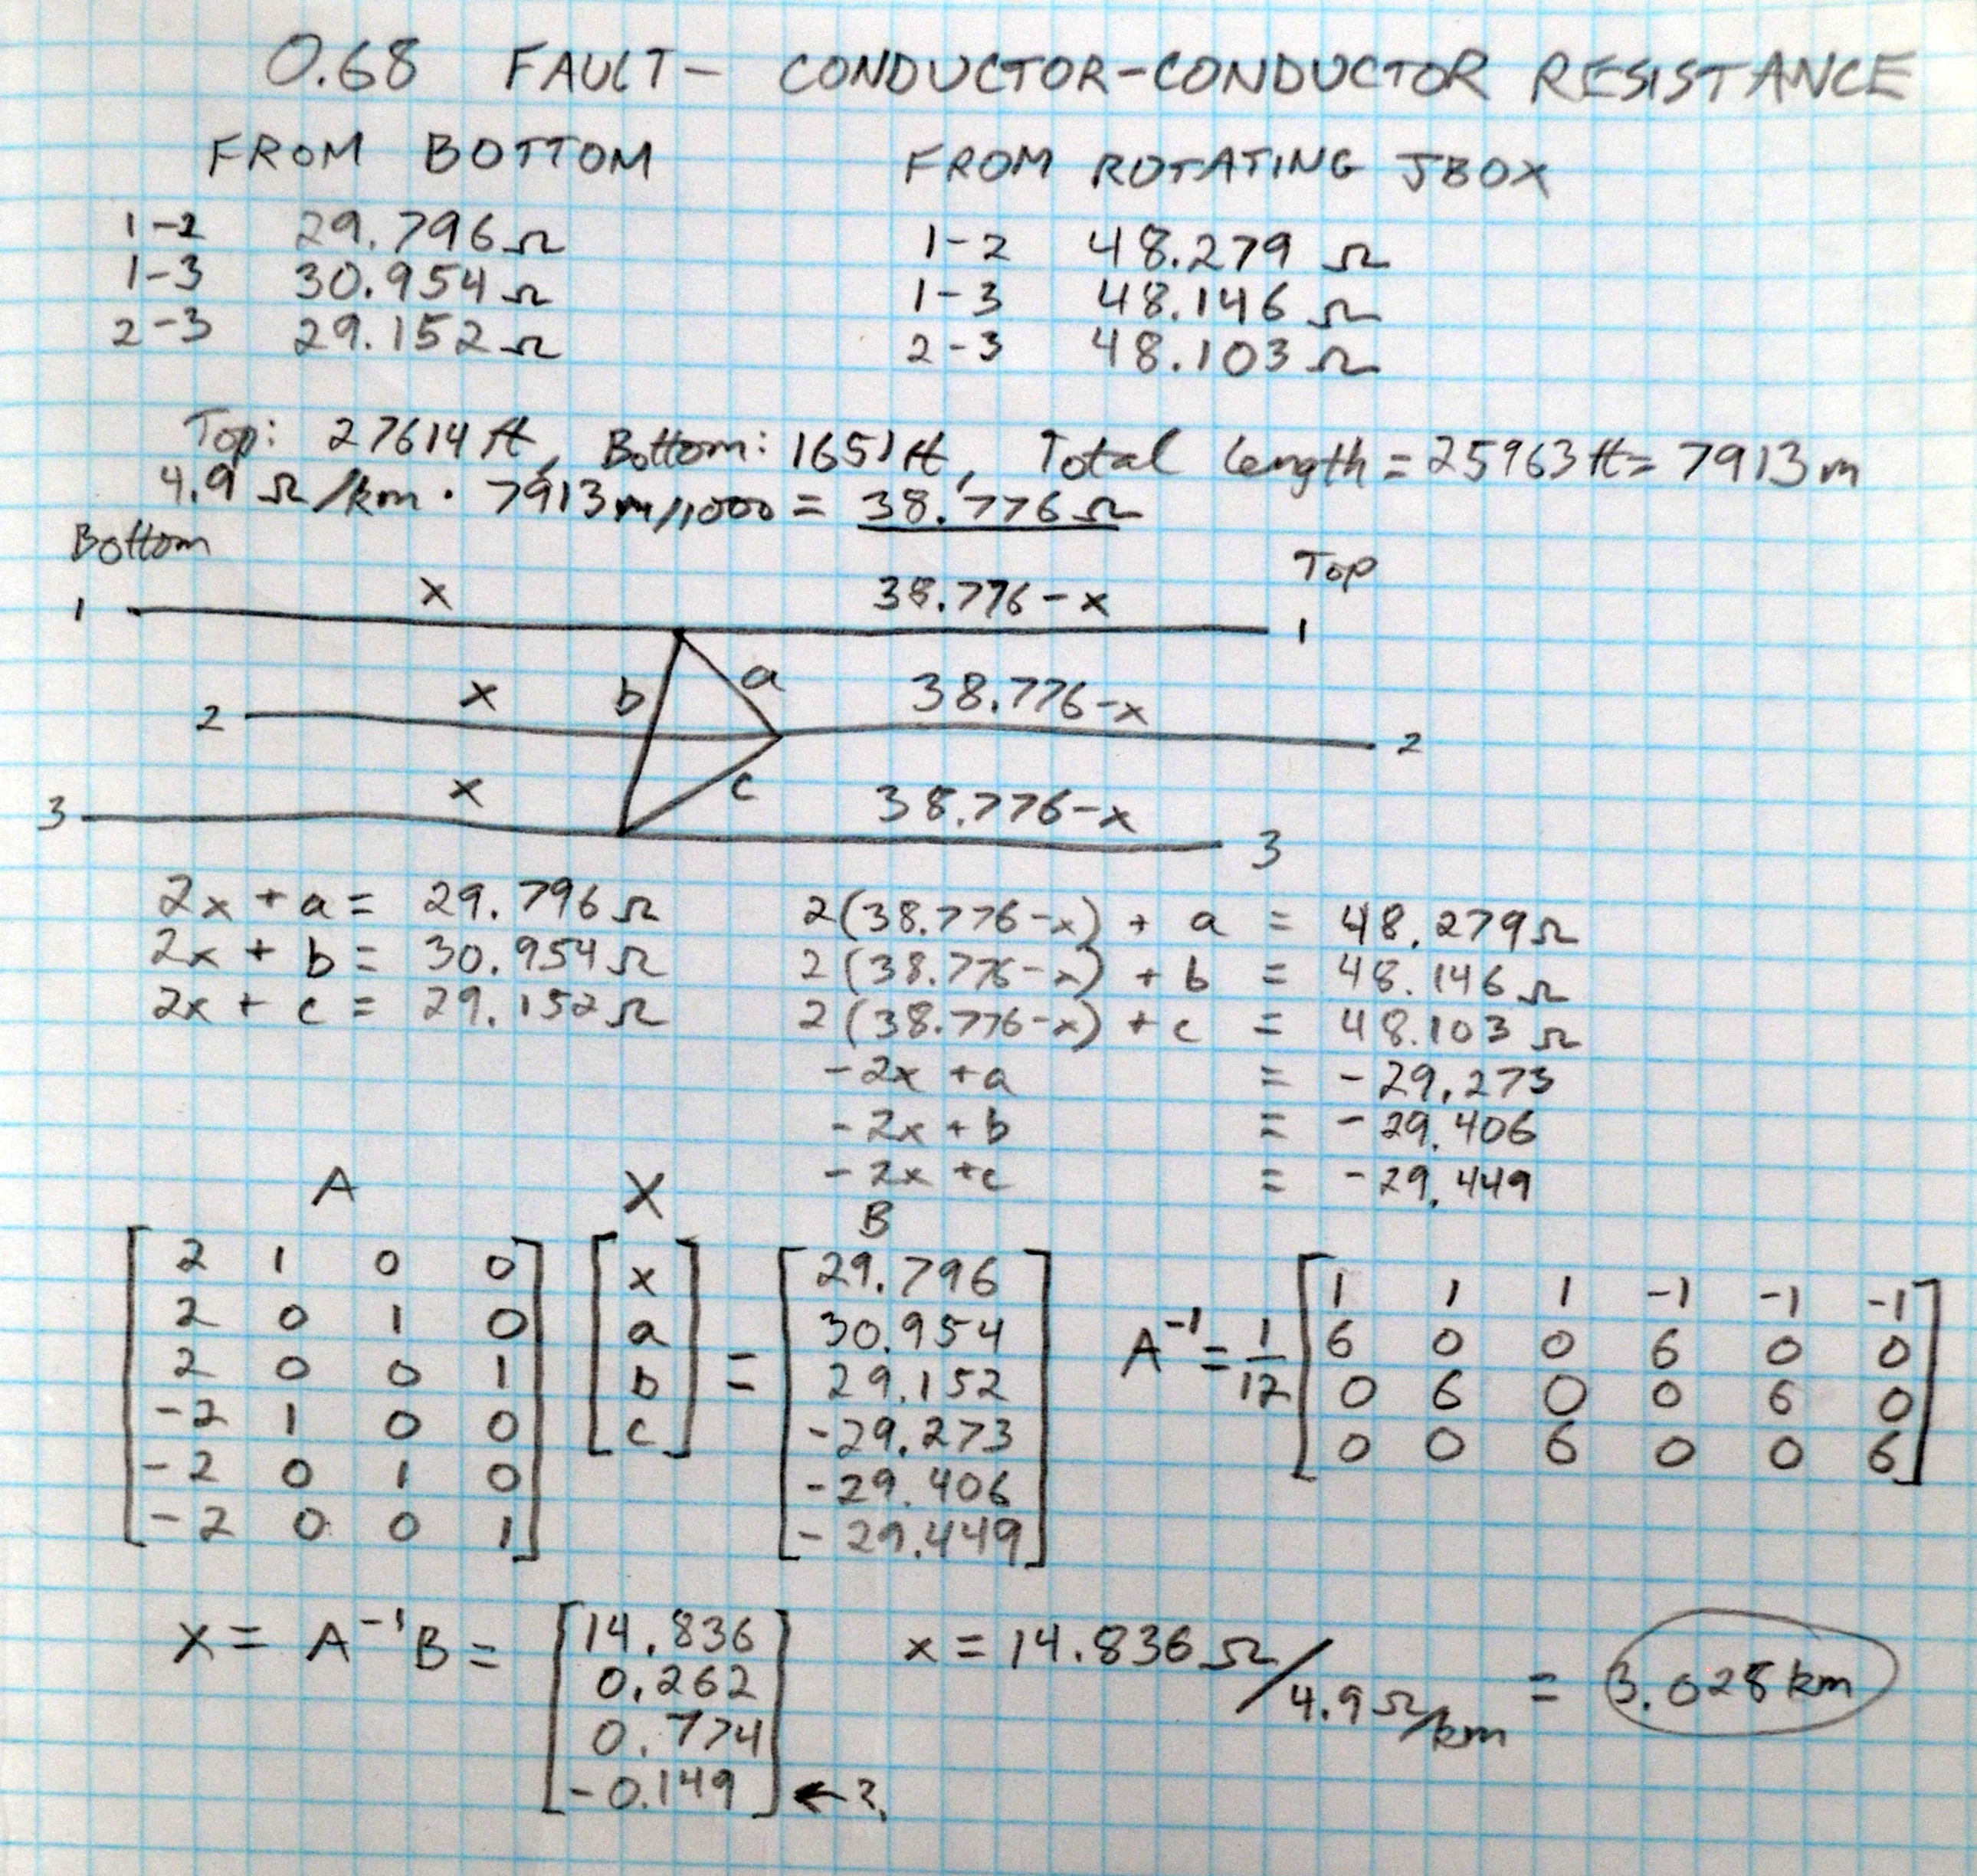 0.68 FAULT - CONDUCTOR-CONDUCTOR RESISTANCE
FROM BOTTOM
1-2 29.796 Ω
1-3 30.954 Ω
2-3 29.152 Ω
FROM ROTATING JBOX
1-2 48.279 Ω
1-3 48.146 Ω
2-3 48.103 Ω
Top: 27614 ft, Bottom: 1651 ft, Total Length = 25963 ft = 7913 m
4.9 Ω/km · 7913m/1000 = 38.776 Ω
Bottom
Top
1 x 38.776-x 1
b a
2 x 38.776-x 2
c
3 x 38.776-x 3
2x + a = 29.796 Ω
2x + b = 30.954 Ω
2x + c = 29.152 Ω
2(38.776-x) + a = 48.279 Ω
2(38.776-x) + b = 48.146 Ω
2(38.776-x) + c = 48.103 Ω
-2x + a = -29.273
-2x + b = -29.406
-2x + c = -29.449
A X B
2 1 0 0
2 0 1 0
2 0 0 1
-2 1 0 0
-2 0 1 0
-2 0 0 1
x
a
b
c
=
29.796
30.954
29.152
-29.273
-29.406
-29.449
A⁻¹ = 1/12
1 1 1 -1 -1 -1
6 0 0 6 0 0
0 6 0 0 6 0
0 0 6 0 0 6
X = A⁻¹B =
14.836
0.262
0.774
-0.149 ←?
x = 14.836 Ω / 4.9 Ω/km = 3.028 km